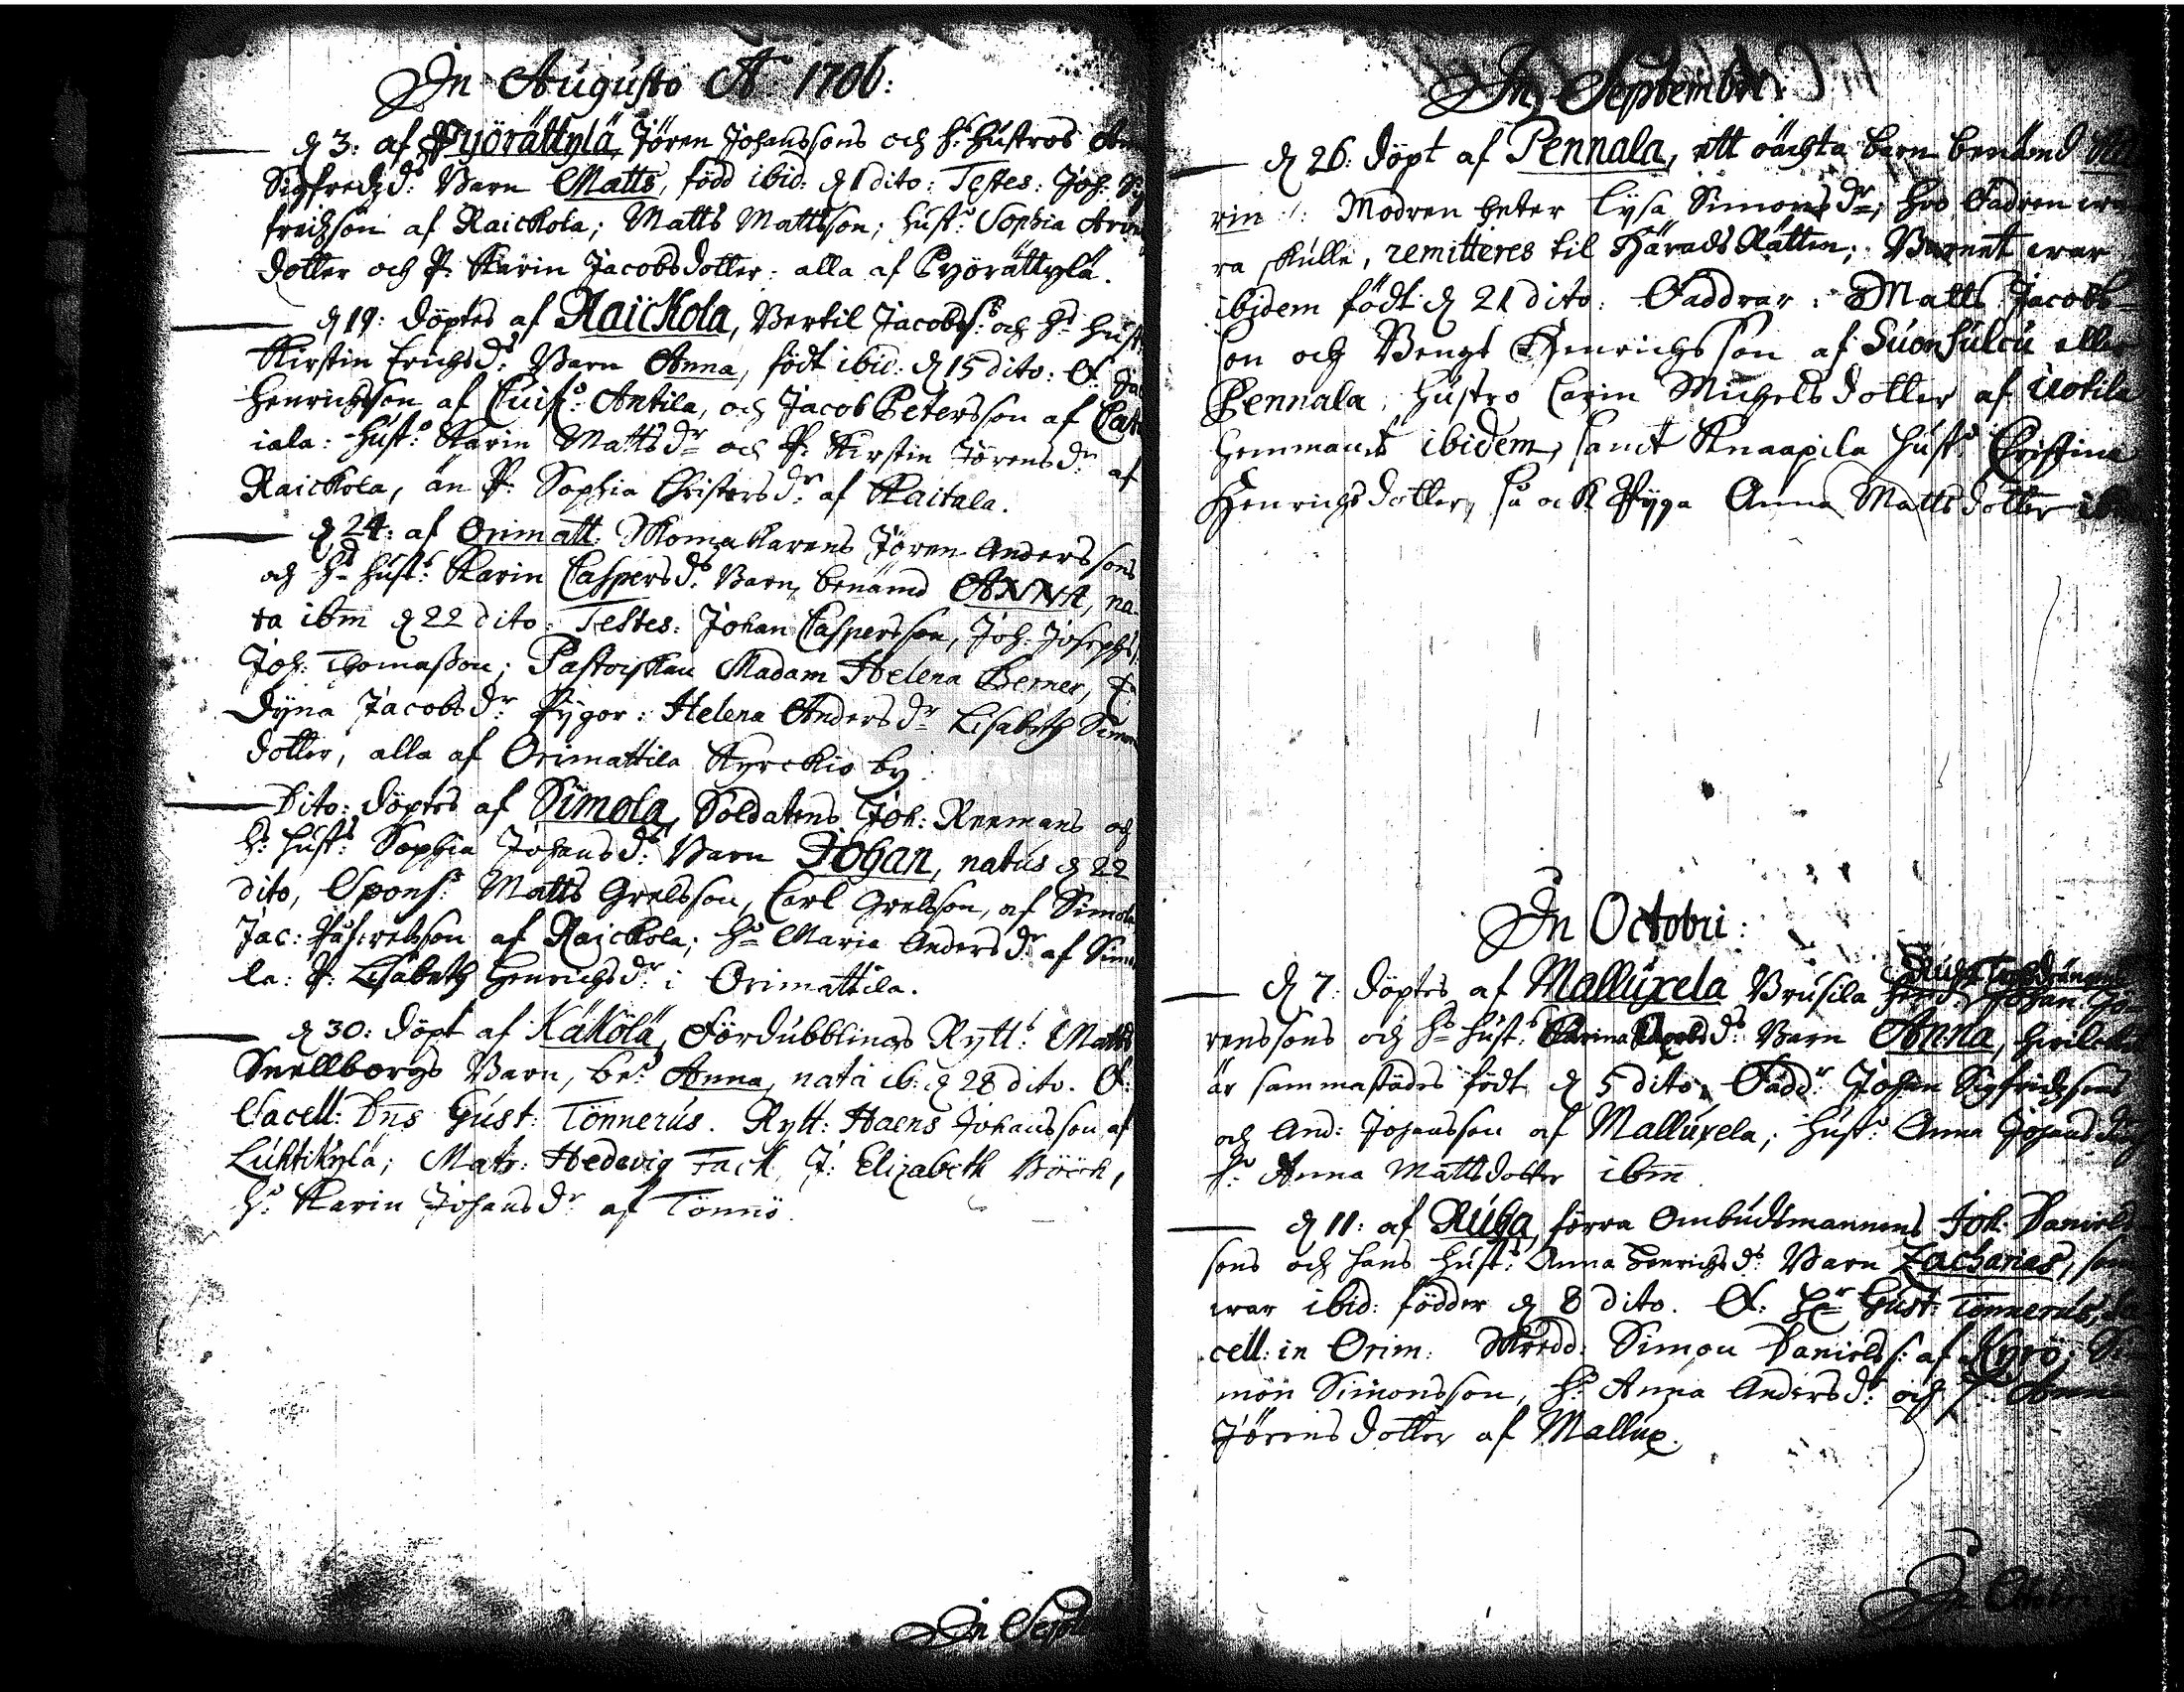 In Augusto A 1706:
d 3: af Pyörättylä, Jören Johanssons och h: hustros
Sigfredzd: Barn Matts, född ibid: d 1 dito: Testes: Joh: Sig
fredzson af Raickola; Matts Mattsson; hust: Sophia
dotter och P: Karin Jacobsdotter: alla af Pyörättylä.
d 19: döptes af Raickola, Bertil Jacobss: och hs hust
Kirstin Erichsd: Barn Anna, födt ibid: d 15 dito: F:
Henrichsson af Antila, och Jacob Petersson af
iala: hust: Karin Mattsdr och P: Kirstin Jörensdr af
Raickola, än P: Sophia Christersdr af Kaitala.
d 24: af Orimatt: Skomakarens Jören Anderssons
och hs hust: Karin Caspersd: Barn, benämd ANNA, na-
ta ibm d 22 dito: Testes: Johan Caspersson, Joh: Josephss:
Joh: Thomasson; Pastorskan Madam Helena
Dyna Jacobsdr: Pygor: Helena Andersdr Lisabeth Simons
dotter, alla af Orimattila Kyrckio by.
Dito: döptes af Simola, Soldatens Joh: Reemans och
hs: hust: Sophia Johansd: Barn Johan, natus d 22
dito, Spons: Matts Grelsson, Carl Grelsson, af Simola
Jac: af Raickola; Maria Andersdr af Simo
la: P: Lisabeth Henrichsdr: i Orimattila.
d 30: döpt af Käkölä, Fördubblings Rytt: Matts
Snellborgs Barn, be: Anna, nata ib: d 28 dito. F:
Sacell: Dns Gust: Tönnerus. Rytt: Haens Johansson af
Luhtikylä; Matr: Hedevig Tack, J: Elizabeth Böök,
h: Karin Johansdr af Tönnö.
In Septe
In Septembri:
d 26: döpt af Pennala, ett oächta barn benämd
rin :/: Modren heter Lysa Simonsdr; hvo Fadren
ra skulle, remitteres til Härads Rätten; Barnet war
ibidem födt d 21 dito: Faddrar: Matts Jacobs-
son och Bengt Henrichsson af Suonsulcu eller
Pennala; hustro Carin Michelsdotter af Uotila
hemmants ibidem, samt Knaapila hust: Christina
Henrichsdotter, så ock Pyga Anna Mattsdotter
In Octobri:
d 7: döptes af Malluxela Brusila Johan Jö-
renssons och hs hust: Barn Anna, hwilcket
är sammastädes födt d 5 dito, Fadd: Johan Sigfridzsons
och And: Johansson af Malluxela; hust: Anna Johans
P: Anna Mattsdotter ibm.
d 11: af Ruha, förra Ombudsmannens Joh: Daniels
sons och hans hust: Anna Henrichsd: Barn Zacharias, som
war ibid: födder d 8 dito. F: Hr Gust: Tönnerus, Sa
cell: in Orim: Skredd: Simon Danielss: af Kyrö; Si
mon Simonsson, h: Anna Andersd: och P: Anna
Jörensdotter af Mallux.
In Octobri